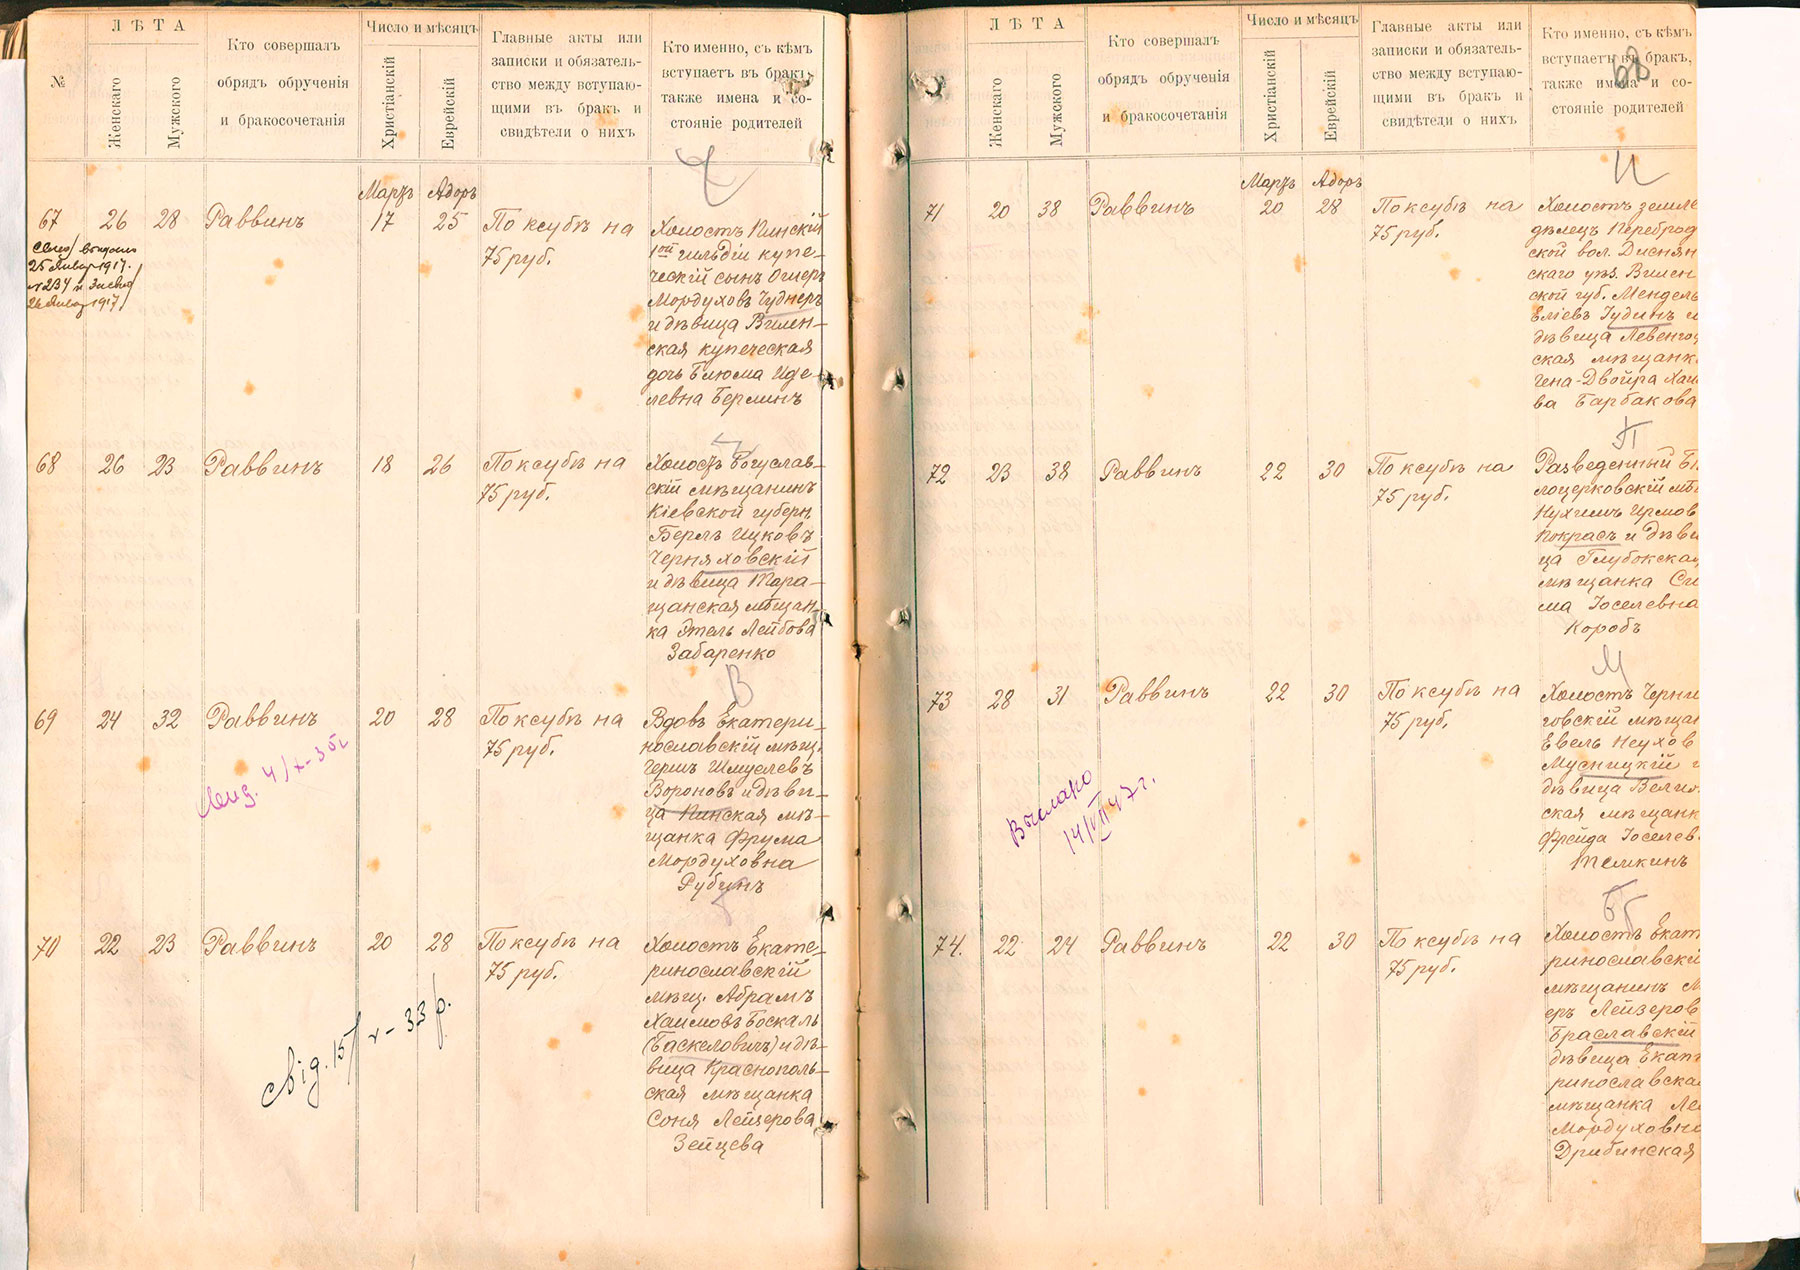 №
ЛѢТА
Женскаго
Мужского
Кто совершалъ
обрядъ обрученія
и бракосочетанія
Число и мѣсяцъ
Христіанскій
Еврейскій
Главные акты или
записки и обязатель-
ство между вступаю-
щими въ бракъ и
свидѣтели о нихъ
Кто именно, съ кѣмъ
вступаетъ въ бракъ,
также имена и со-
стояніе родителей
Ч
Мартъ Адоръ
67 26 28 Раввинъ 17 25
По ксубѣ на
75 руб.
Холостъ Пинскій
1ой гильдіи купе-
ческій сынъ Ошеръ
Мордуховъ Чуднеръ
и дѣвица Вилен-
ская купеческая
дочь Блюма Иде-
левна Берлинъ
25 Январ 1917.
№ 234 и
26 Январ 1917
Ч
68 26 23 Раввинъ 18 26
По ксубѣ на
75 руб.
Холостъ Богуслав-
скій мѣщанинъ
Кіевской губерн.
Берлъ Ицковъ
Черняховскій
и дѣвица Тара-
щанская мѣщан-
ка Этель Лейбова
Забаренко
В
69 24 32 Раввинъ 20 28
По ксубѣ на
75 руб.
Вдовъ Екатери-
нославскій мѣщ.
Гершъ Шмуелевъ
Вороновъ и дѣви-
ца Пинская мѣ-
щанка Фрума
Мордуховна
Рубинъ
4/X-35г
Б
70 22 23 Раввинъ 20 28
По ксубѣ на
75 руб.
Холостъ Екате-
ринославскій
мѣщ. Абрамъ
Хаимовъ Боскаль
(Баскеловичъ) и дѣ-
вица Краснополь-
ская мѣщанка
Соня Лейзерова
Зейцева
свід. 15/ - 33 р.
ЛѢТА
Женскаго
Мужского
Кто совершалъ
обрядъ обрученія
и бракосочетанія
Число и мѣсяцъ
Христіанскій
Еврейскій
Главные акты или
записки и обязатель-
ство между вступаю-
щими въ бракъ и
свидѣтели о нихъ
Кто именно, съ кѣмъ
вступаетъ въ бракъ,
также имена и со-
стояніе родителей
И
Мартъ Адоръ
71 20 38 Раввинъ 20 28
По ксубѣ на
75 руб.
Холостъ земле
дѣлецъ Переброд
ской вол. Диснян
скаго уѣз. Вилен
ской губ. Мендель
Еліевъ Іудинъ и
дѣвица Левенгод
ская мѣщанк
Гена-Двойра Хаи
ва Барбакова
П
72 23 38 Раввинъ 22 30
По ксубѣ на
75 руб.
Разведенный Бѣ
лоцерковскій мѣ
Нухимъ Ирмов
Покрасъ и дѣви
ца Глубокская
мѣщанка Си
ма Іоселевна
Коробъ
М
73 28 31 Раввинъ 22 30
По ксубѣ на
75 руб.
Холостъ Черни
говскій мѣщан
Евель Неухов
Мусницкій и
дѣвица Велиж
ская мѣщанк
Фрейда Іоселев
Темкинъ
Выслано
14/VII 47г.
Б
74. 22 24 Раввинъ 22 30
По ксубѣ на
75 руб.
Холостъ Екат
ринославскій
мѣщанинъ М
еръ Лейзеров
Браславскій
дѣвица Екат
ринославская
мѣщанка Ле
Мордуховна
Дрибинская